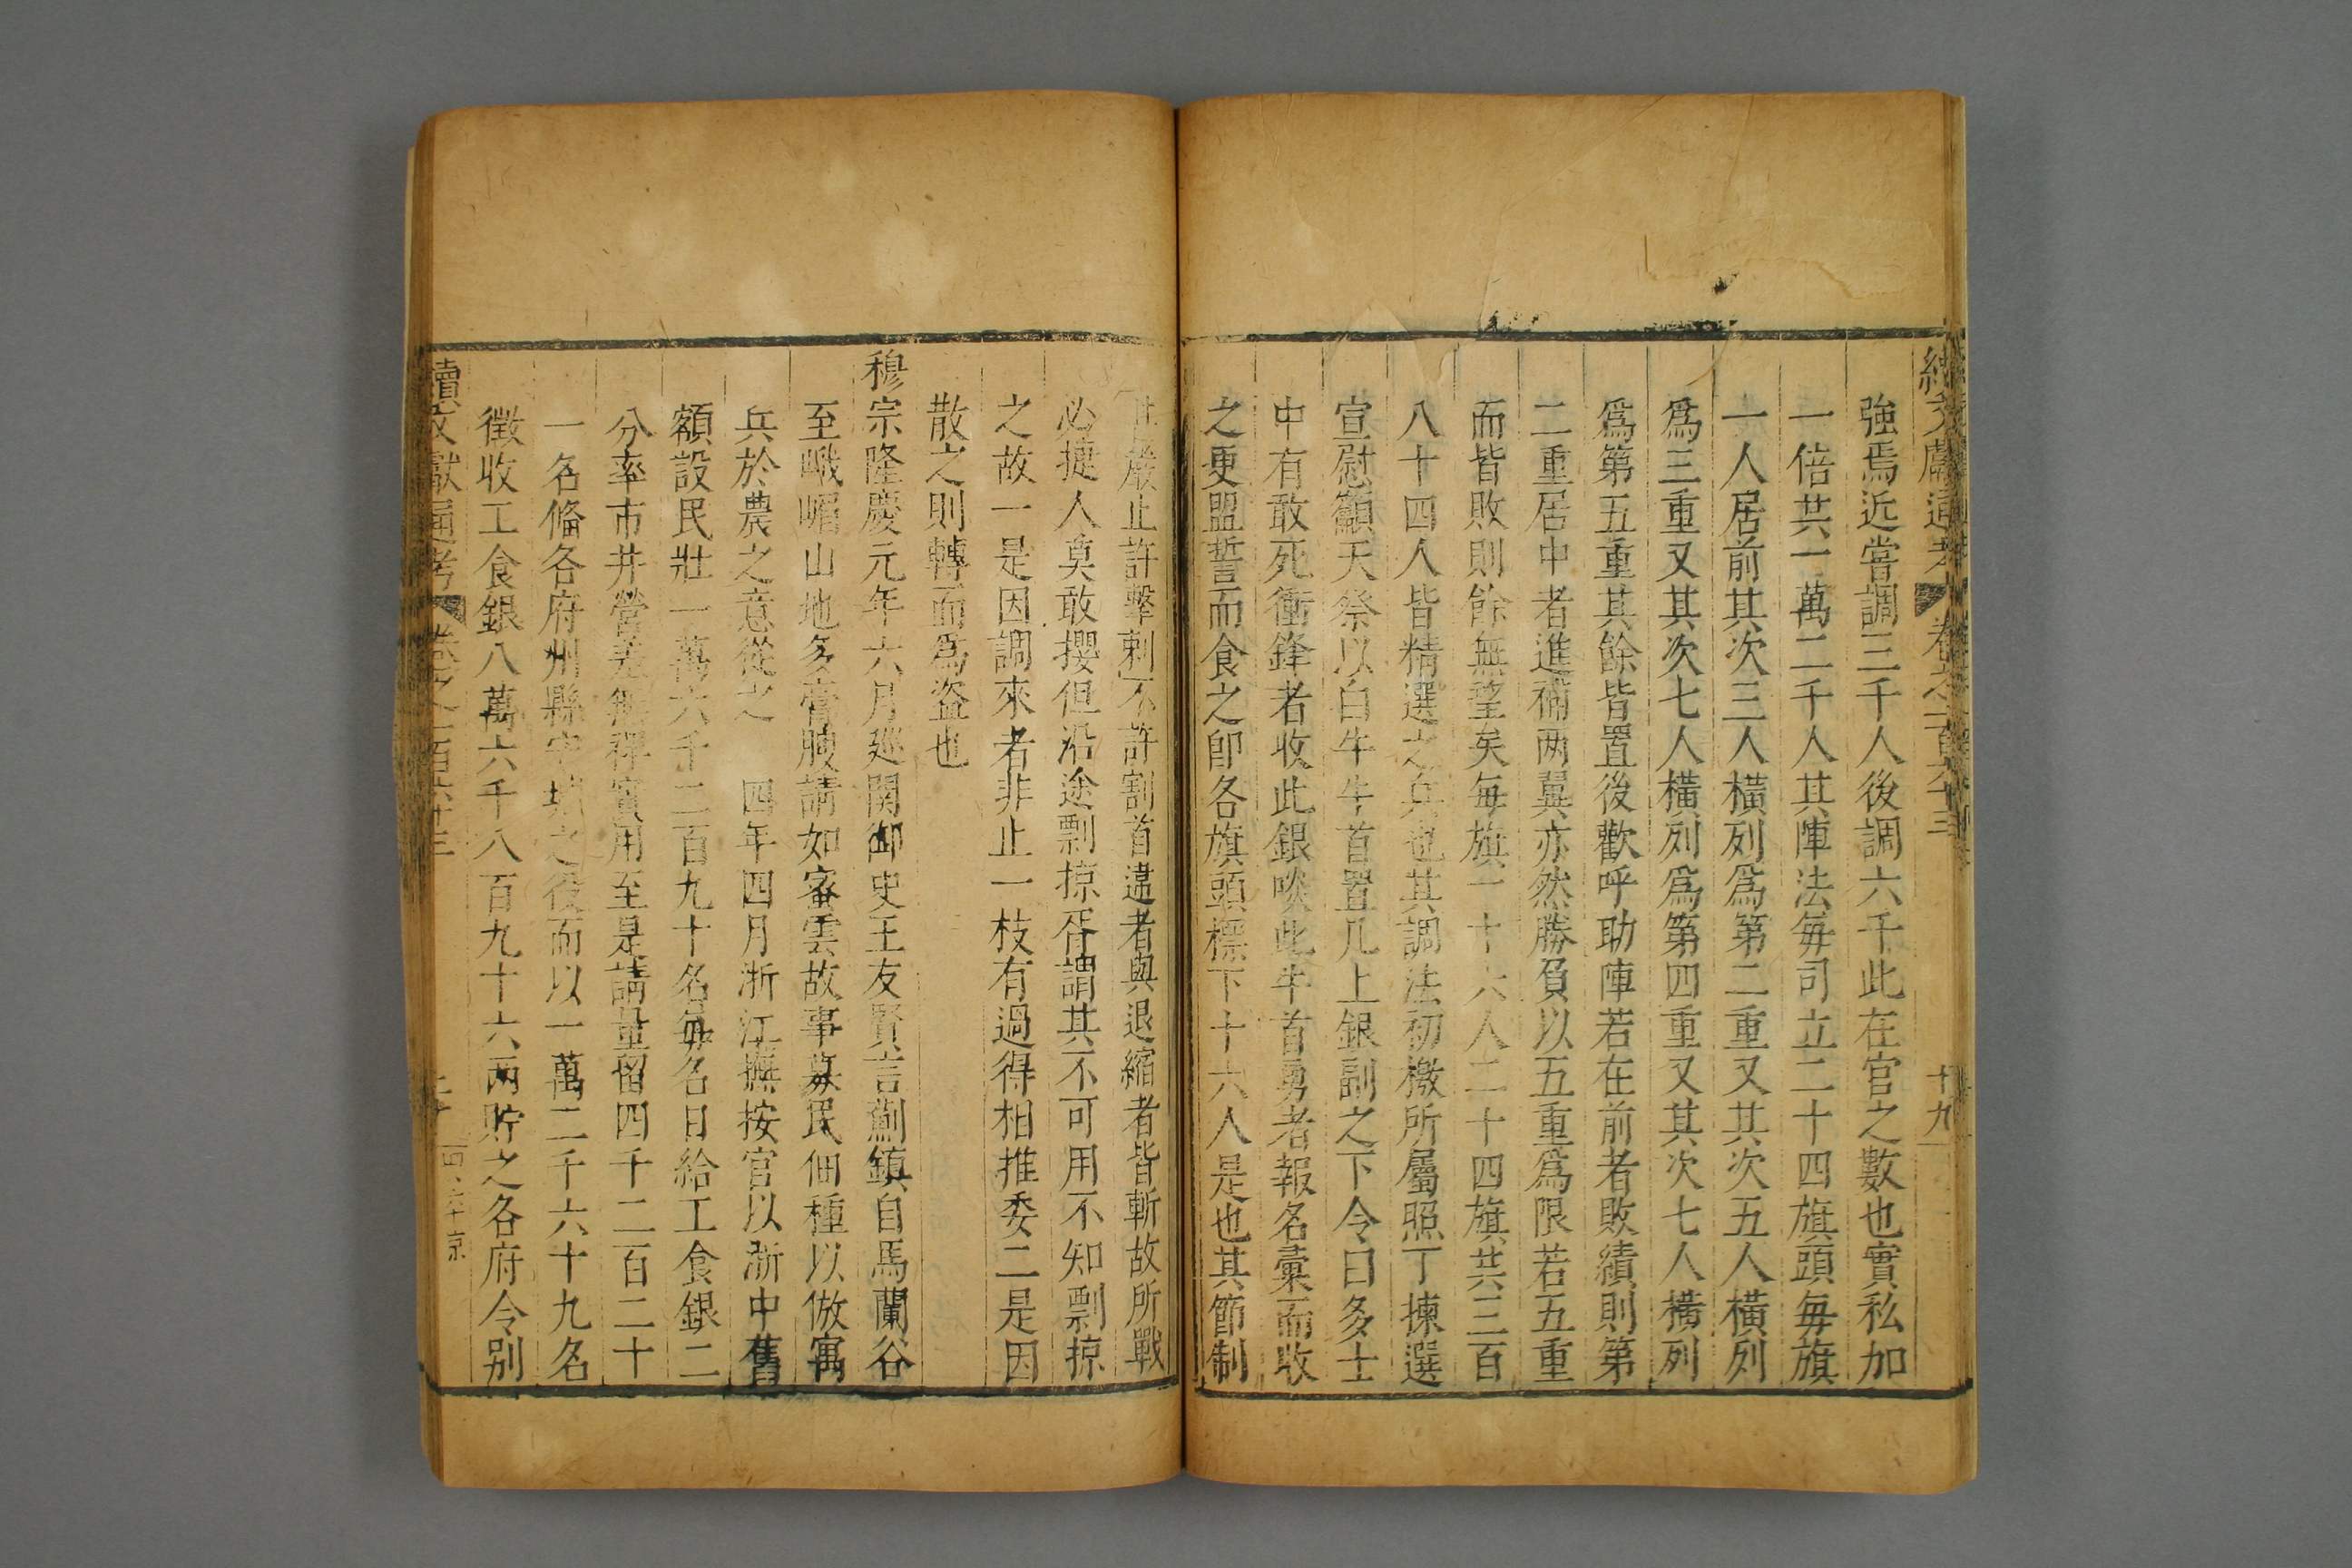 續文獻通考 卷之一百六十三 十九
強焉近嘗調三千人後調六千此在官之數也實私加
一倍共一萬二千人其陣法每司立二十四旗頭每旗
一人居前其次三人橫列爲第二重又其次五人橫列
爲三重又其次七人橫列爲第四重又其次七人橫列
爲第五重其餘皆置後歡呼助陣若在前者敗績則第
二重居中者進補两翼亦然勝負以五重爲限若五重
而皆敗則餘無望矣每旗一十六人二十四旗共三百
八十四人皆精選之兵也其調法初檄所屬照丁揀選
宣慰籲天祭以白牛牛首置几上銀副之下令曰多士
中有敢死衝鋒者收此銀啖此牛首勇者報名彙而收
之更盟誓而食之卽各旗頭標下十六人是也其節制
嚴止許擊刺不許割首違者與退縮者皆斬故所戰
必捷人莫敢攖但沿途剽掠胥謂其不可用不知剽掠
之故一是因調來者非止一枝有過得相推委二是因
散之則轉而爲盜也
穆宗隆慶元年六月廵関御史王友賢言薊鎮自馬蘭谷
至峨嵋山地多膏腴請如密雲故事募民佃種以倣寓
兵於農之意從之 四年四月浙江撫按官以浙中舊
額設民壯一萬六千二百九十名每名日給工食銀二
分率市井營差無裨實用至是請量留四千二百二十
一名俻各府州縣守城之役而以一萬二千六十九名
徵收工食銀八萬六千八百九十六兩貯之各府令别
續文獻通考 卷之一百六十三 二十